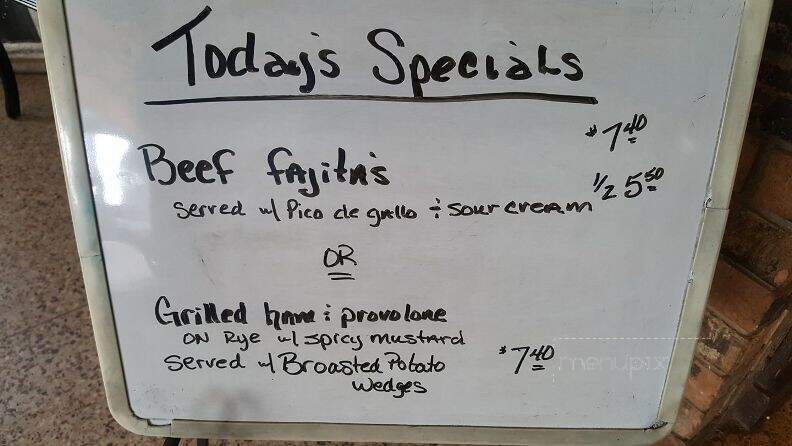 Today's Specials
$7.40
Beef fajita's
1/2 5.50
served w/ Pico de gallo & sour cream
OR
Grilled ham & provolone
on Rye w/ spicy mustard
served w/ Broasted Potato $7.40
Wedges
menupix